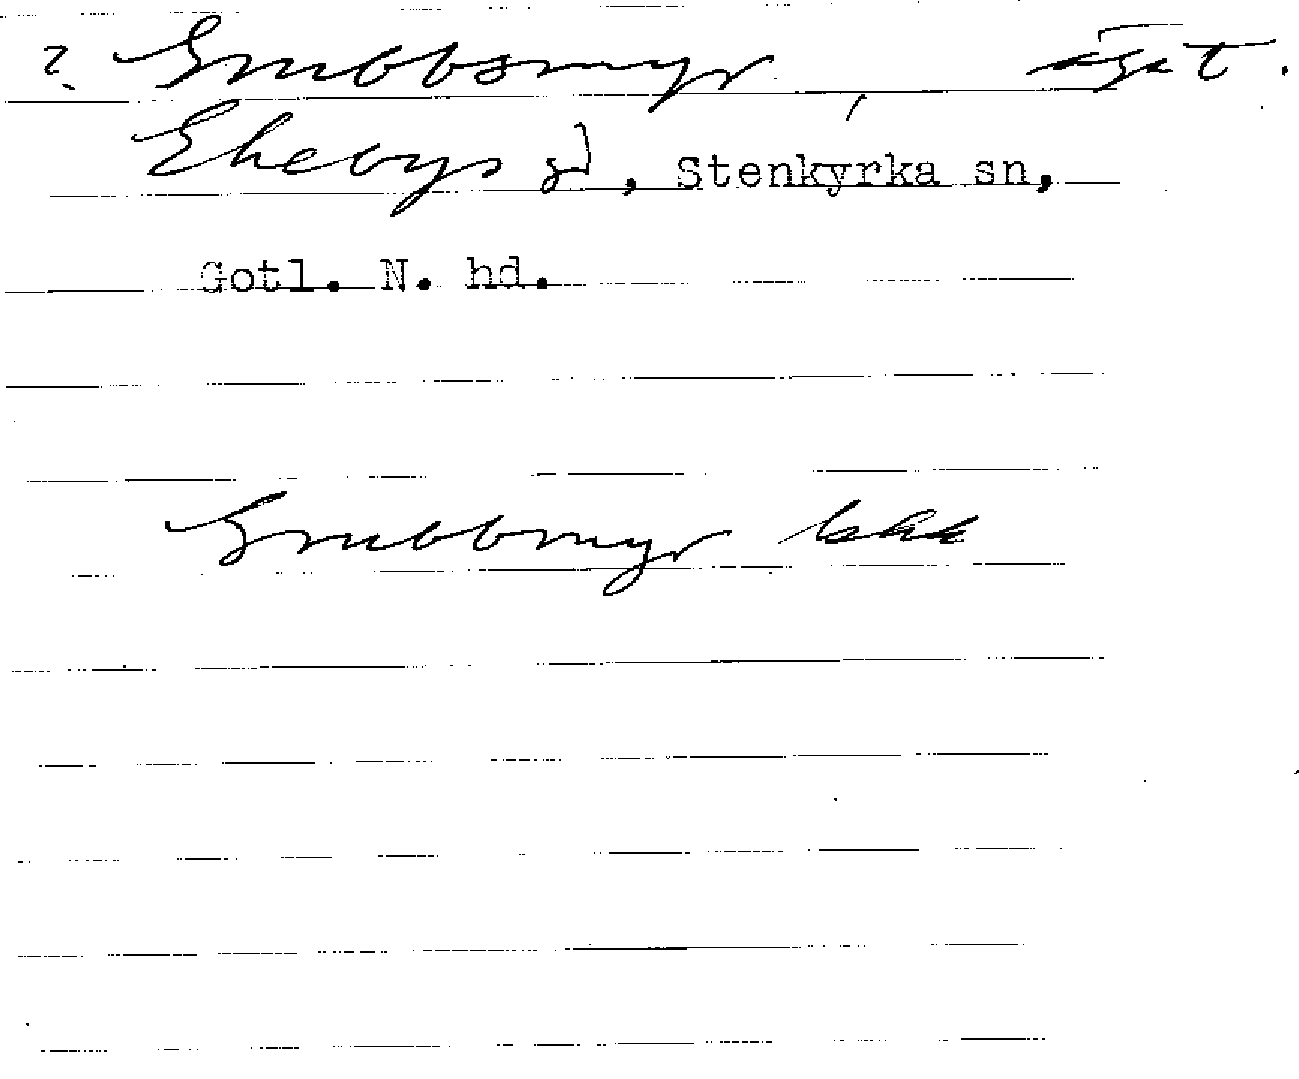 ? Grubbsmyr, ägot.
Ekebys gd, Stenkyrka sn,
Gotl. N. hd.
Grubbmyr